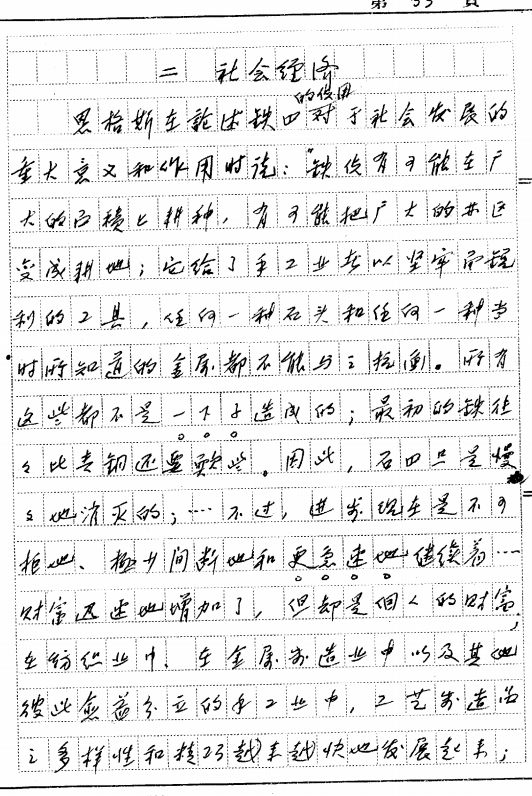 第 33 頁
二 社会经济
恩格斯在論述铁口的使用对于社会发展的
重大意义和作用时说："铁使有可能在广
大的面積上耕种，有可能把广大的林区
变成耕地；它给了手工业者以坚牢而锐
利的工具，任何一种石头和任何一种当
时所知道的金属都不能与之抗衡。所有
这些都不是一下子造成的；最初的铁往
々比青铜还要軟些。因此，石口只是慢
々地消灭的；…不过，进步现在是不可
拒地、極少间断地和更急速地继续着…
财富迅速地增加了，但却是個人的财富；
在纺织业中、在金属制造业中以及其他
彼此愈益分立的手工业中，工艺制造品
之多样性和精巧越来越快地发展起来；